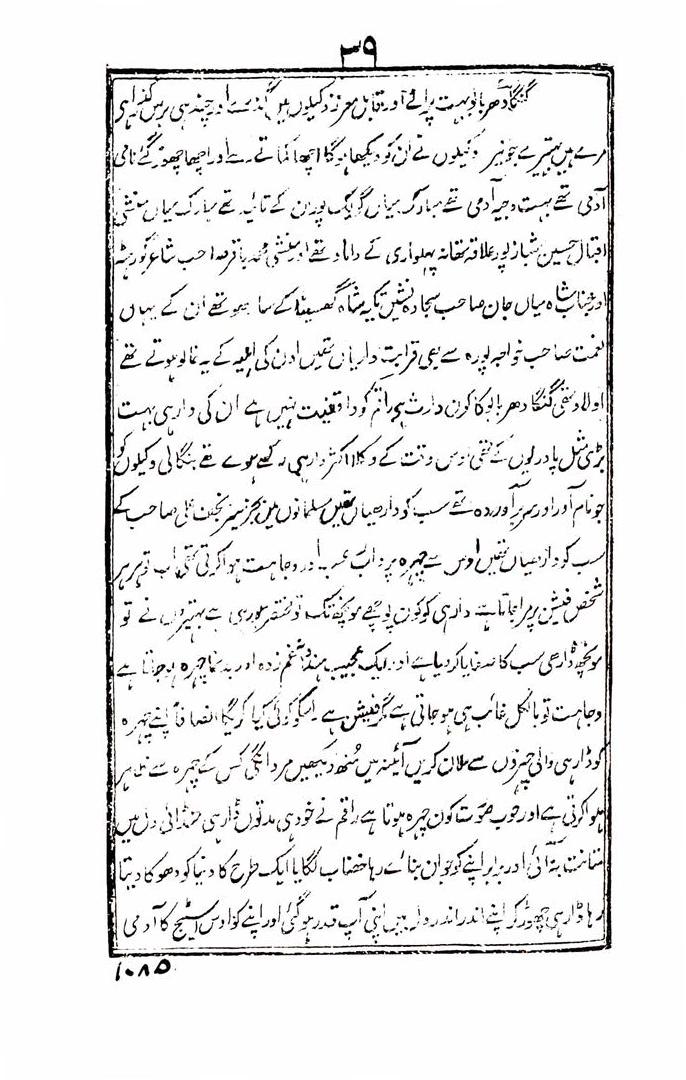 ۳۹
گنگا دھر بابو بہت پرانے اور قابل معزز وکیلوں میں گذرے اور چند ہی برس گذرا ہی
مرے ہیں بہتیرے جونیر وکیلوں نے ان کو دیکھا ہوگا اچھا کماتے رہے اور اچھا چھوڑ گئے نامی
آدمی تھے بہت وجیہ آدمی تھے مبارک میاں گریک پورن کے تائید تھے مبارک میاں منشی
اقبال حسین شہباز پور علاقہ تھانہ پھلواری کے داماد تھے اور منشی محمد باقر صاحب شاعر گورہٹہ
اور جناب شاہ میاں جان صاحب سجادہ نشیں تکیہ شاہ گھسیٹا کے ساڑھو تھے ان کے یہاں
نعمت صاحب خواجہ پورہ سے بھی قرابت داریاں تھیں اون کی اہلیہ کے یہ خالو ہوتے تھے
اولاد تھی گنگا دھر بابو کا کون وارث ہے راقم کو واقفیت نہیں ہے ان کی داڑہی بہت
بڑی مثل پادریوں کے تھی اوس وقت کے وکلا اکثر داڑہی رکھے ہوے تھے بنگالی وکیلوں کو
جو نام آور اور سربرآوردہ تھے سب کو داڑھیاں تھیں مسلمانوں میں بجز میر نجف علی صاحب کے
سب کو داڑھیاں تھیں اوس سے چہرہ پر داب عربہ اور وجاہت ہوا کرتی تھی اب تو ہر ہر
شخص فیشن پر مرا جاتا ہے داڑہی کو کون پوچھے مونچھ تک تو مختصر ہو رہی ہے بہتیروں نے تو
مونچھ ڈاڑھی سب کا صفایا کر دیا ہے اور ایک عجیب غم زدہ اور بدنما چہرہ ہو جاتا ہے
وجاہت تو بالکل غائب ہی ہو جاتی ہے مگر فیشن ہے اسکو کوئی کیا کریگا انصافاً اپنے چہرہ
کو ڈاڑہی والی چہروں سے ملان کریں آئینہ میں منھ دیکھیں مردانگی کس کے چہرہ سے ظاہر
ہوا کرتی ہے اور خوب صورت کون چہرہ ہوتا ہے راقم نے خود ہی مدتوں ڈاڑہی منڈائی دل میں
متانت نہ آئی اور برابر اپنے کو جوان بناے رہا خضاب لگایا ایک طرح کا دنیا کو دھوکا دیتا
رہا ڈاڑہی چھوڑ کر اپنے اندر اندر دل میں اپنی آپ قدر ہو گئی اور اپنے کو اوس اسٹیج کا آدمی
۱۰۸۵